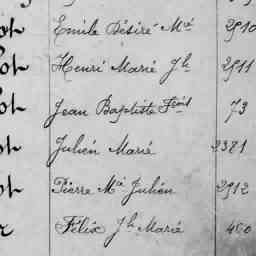 ot Emile Désiré Mié 2910
ot Henri Marie Jh 2911
ot Jean Baptiste Frois 73
ot Julien Marie 2381
ot Pierre Mie Julien 2912
r Félix Jh Marie 460